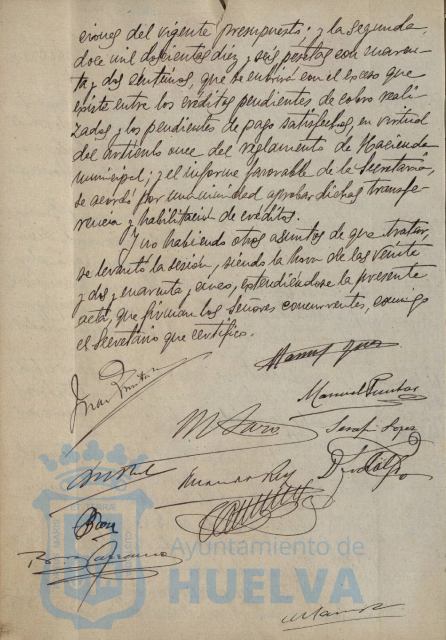 ciones del vigente presupuesto; y la segunda,
doce mil doscientas diez y seis pesetas con cuaren-
ta y dos centimos, que se cubrirá con el exceso que
existe entre los créditos pendientes de cobro reali-
zados y los pendientes de pago satisfechos, en virtud
del artículo once del reglamento de Hacienda
municipal; y el informe favorable de la Secretaría,
se acordó por unanimidad aprobar dichas transfe-
rencia y habilitación de créditos.
Y no habiendo otros asuntos de que tratar,
se levantó la sesión, siendo la hora de las veinte
y dos y cuarenta y cinco, extendiéndose la presente
acta, que firman los Señores concurrentes, conmigo
el Secretario que certifico.
Manuel
Juan
Manuel
M.
Serafí Lopez
Rey
Ayuntamiento de
HUELVA